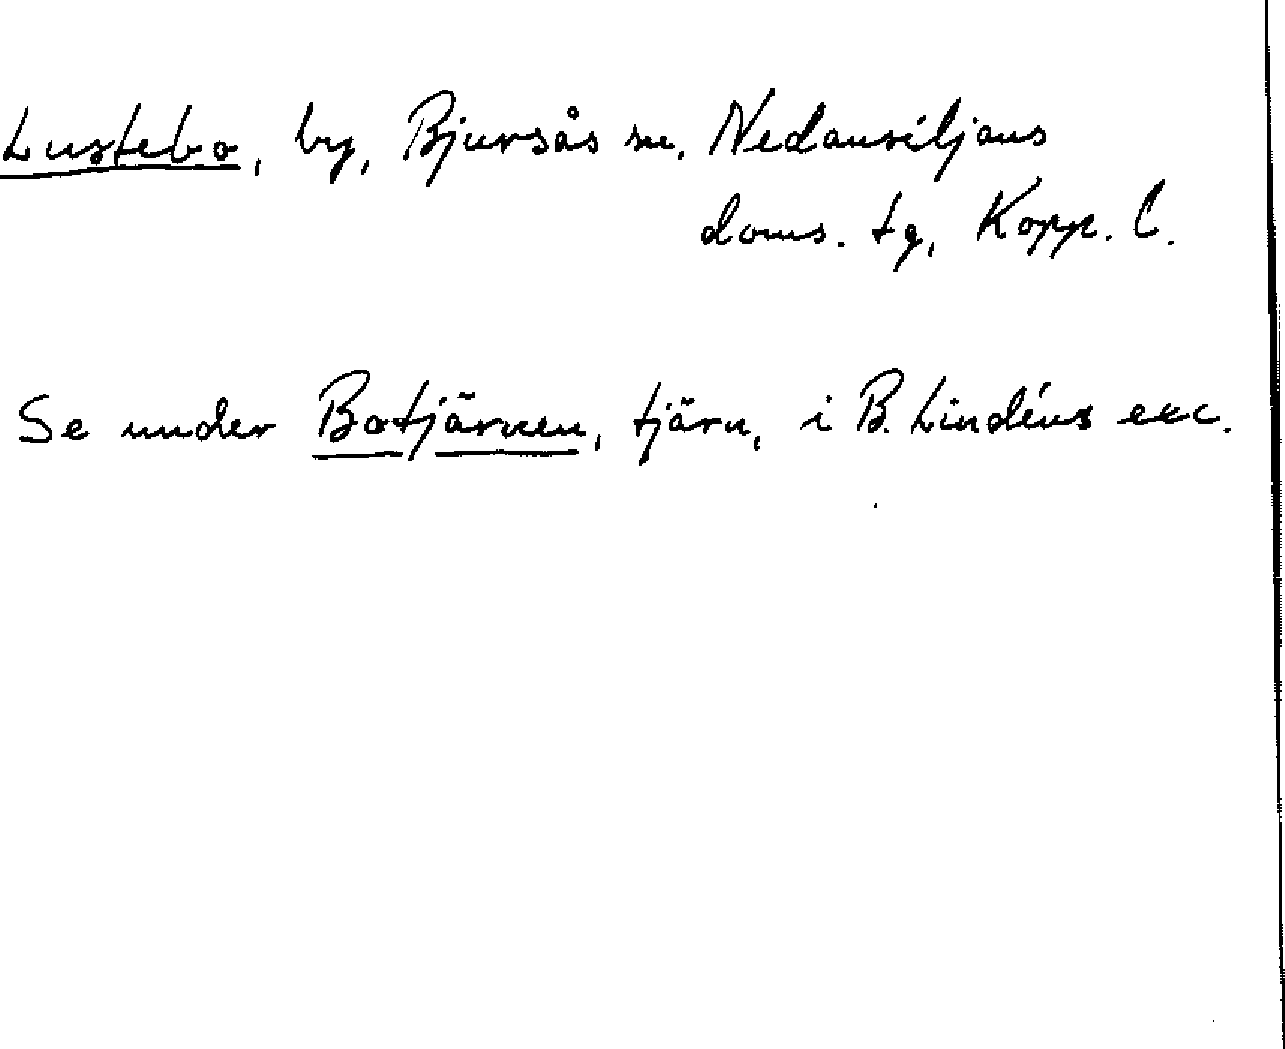 Lustebo, by, Bjursås sn, Nedansiljans
doms. tg, Kopp. l.
Se under Botjärnen, tjärn, i B. Lindéns exc.